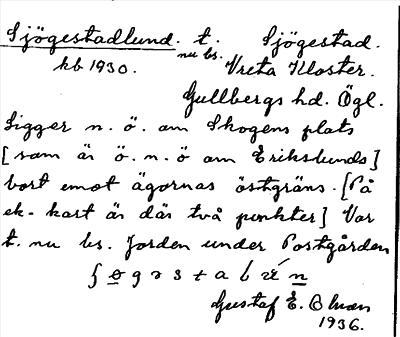 Sjögestadlund. t. Sjögestad.
nu bs.
kb 1930. Vreta Kloster.
Gullbergs hd. Ögl.
Ligger n. ö. om Skogens plats
[som är ö. n. ö om Erikslunds]
bort emot ägornas östgräns. [På
ek-kart är där två punkter] Var
t. nu bs. Jorden under Postgården
Gustaf E. Olman
1936.